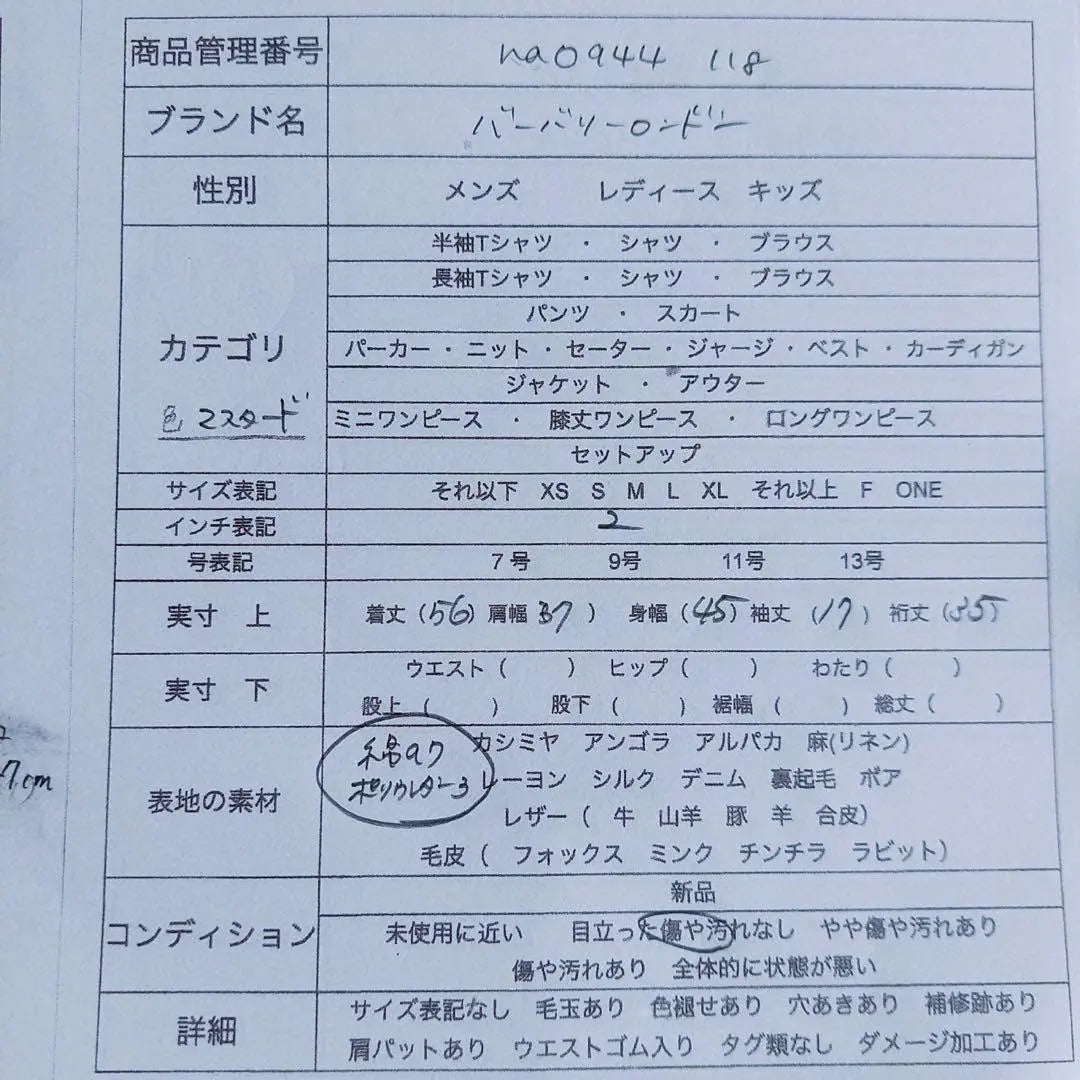 商品管理番号 na0944 118
ブランド名 バーバリーロンドン
性別 メンズ レディース キッズ
半袖Tシャツ ・ シャツ ・ ブラウス
長袖Tシャツ ・ シャツ ・ ブラウス
パンツ ・ スカート
カテゴリ パーカー・ニット・セーター・ジャージ・ベスト・カーディガン
ジャケット ・ アウター
色 マスタード ミニワンピース ・ 膝丈ワンピース ・ ロングワンピース
セットアップ
サイズ表記 それ以下 XS S M L XL それ以上 F ONE
インチ表記 2
号表記 7号 9号 11号 13号
実寸 上 着丈（56）肩幅 37 ） 身幅（45）袖丈（17）裄丈（35）
実寸 下 ウエスト（ ） ヒップ（ ） わたり（ ）
股上（ ） 股下（ ） 裾幅（ ） 総丈（ ）
綿97 カシミヤ アンゴラ アルパカ 麻(リネン)
ポリウレタン3 レーヨン シルク デニム 裏起毛 ボア
表地の素材 レザー（ 牛 山羊 豚 羊 合皮）
毛皮（ フォックス ミンク チンチラ ラビット）
新品
コンディション 未使用に近い 目立った傷や汚れなし やや傷や汚れあり
傷や汚れあり 全体的に状態が悪い
詳細 サイズ表記なし 毛玉あり 色褪せあり 穴あきあり 補修跡あり
肩パットあり ウエストゴム入り タグ類なし ダメージ加工あり
7cm